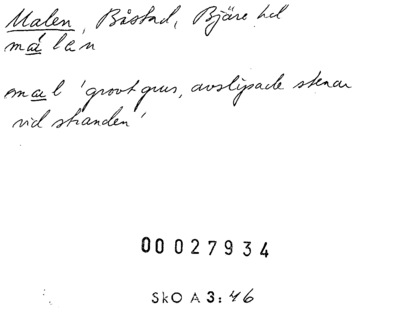 Malen, Båstad, Bjäre hd
málan
mal 'grovt grus, avslipade stenar
vid stranden'
00027934
SkO A 3:46